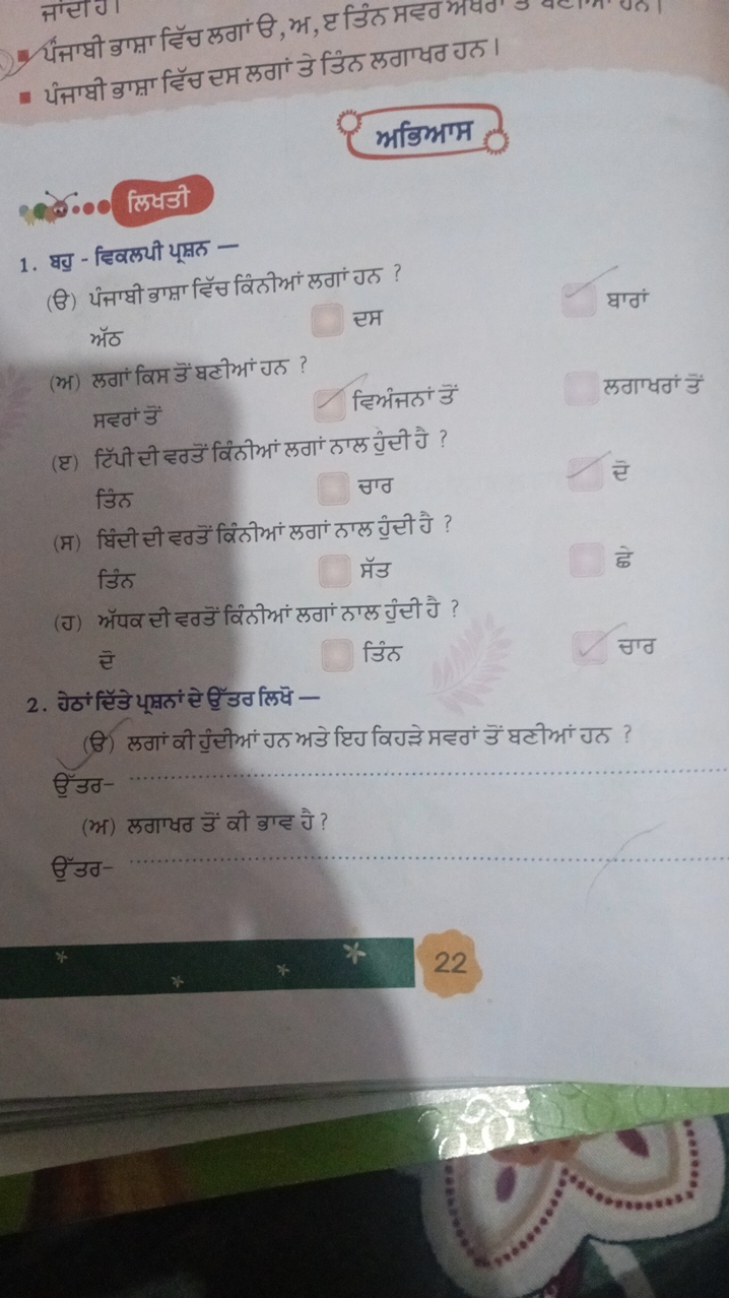 ਜਾਂਦੀ ਹੈ।
ਪੰਜਾਬੀ ਭਾਸ਼ਾ ਵਿੱਚ ਲਗਾਂ ੳ, ਅ, ੲ ਤਿੰਨ ਸਵਰ
ਪੰਜਾਬੀ ਭਾਸ਼ਾ ਵਿੱਚ ਦਸ ਲਗਾਂ ਤੇ ਤਿੰਨ ਲਗਾਖਰ ਹਨ।
ਅਭਿਆਸ
ਲਿਖਤੀ
1. ਬਹੁ - ਵਿਕਲਪੀ ਪ੍ਰਸ਼ਨ —
(ੳ) ਪੰਜਾਬੀ ਭਾਸ਼ਾ ਵਿੱਚ ਕਿੰਨੀਆਂ ਲਗਾਂ ਹਨ ?
ਅੱਠ ਦਸ ਬਾਰਾਂ
(ਅ) ਲਗਾਂ ਕਿਸ ਤੋਂ ਬਣੀਆਂ ਹਨ ?
ਸਵਰਾਂ ਤੋਂ ਵਿਅੰਜਨਾਂ ਤੋਂ ਲਗਾਖਰਾਂ ਤੋਂ
(ੲ) ਟਿੱਪੀ ਦੀ ਵਰਤੋਂ ਕਿੰਨੀਆਂ ਲਗਾਂ ਨਾਲ ਹੁੰਦੀ ਹੈ ?
ਤਿੰਨ ਚਾਰ ਦੋ
(ਸ) ਬਿੰਦੀ ਦੀ ਵਰਤੋਂ ਕਿੰਨੀਆਂ ਲਗਾਂ ਨਾਲ ਹੁੰਦੀ ਹੈ ?
ਤਿੰਨ ਸੱਤ ਛੇ
(ਹ) ਅੱਧਕ ਦੀ ਵਰਤੋਂ ਕਿੰਨੀਆਂ ਲਗਾਂ ਨਾਲ ਹੁੰਦੀ ਹੈ ?
ਦੋ ਤਿੰਨ ਚਾਰ
2. ਹੇਠਾਂ ਦਿੱਤੇ ਪ੍ਰਸ਼ਨਾਂ ਦੇ ਉੱਤਰ ਲਿਖੋ —
(ੳ) ਲਗਾਂ ਕੀ ਹੁੰਦੀਆਂ ਹਨ ਅਤੇ ਇਹ ਕਿਹੜੇ ਸਵਰਾਂ ਤੋਂ ਬਣੀਆਂ ਹਨ ?
ਉੱਤਰ–
(ਅ) ਲਗਾਖਰ ਤੋਂ ਕੀ ਭਾਵ ਹੈ ?
ਉੱਤਰ–
22